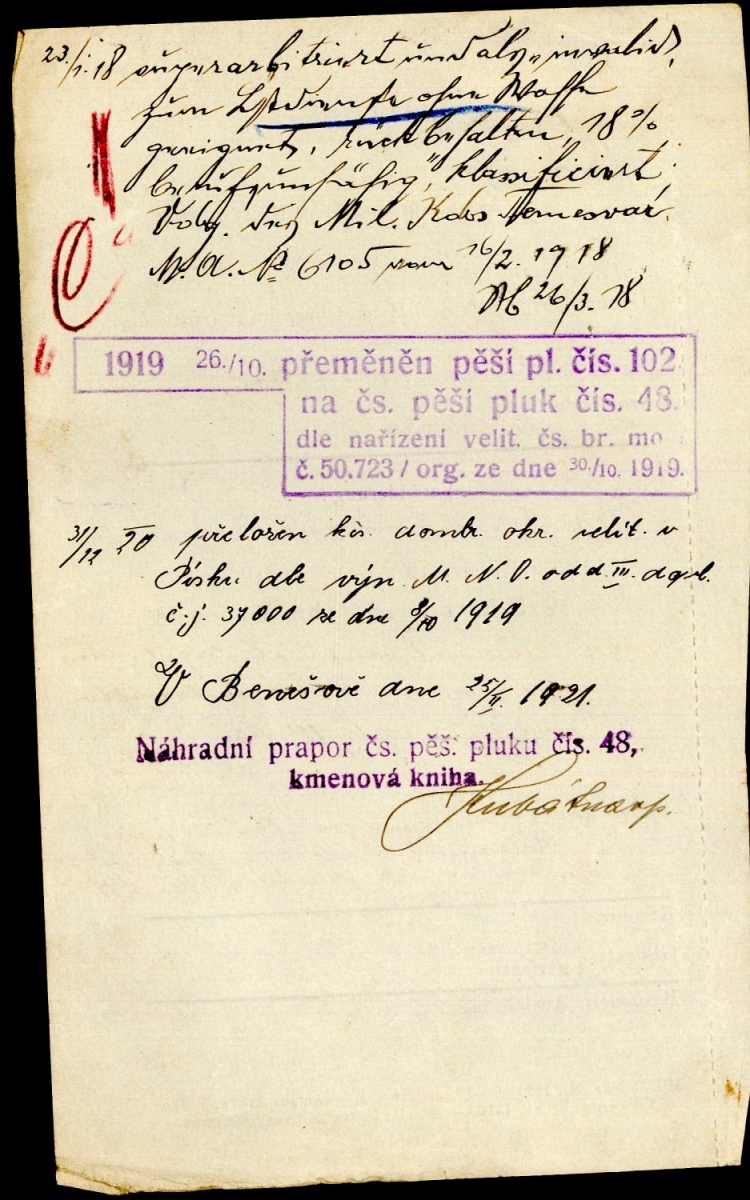 23./I. 18 superarbitriert und als „invalid,
zum Lstdienste ohne Waffe
geeignet, rückbehalten, 18%
berufsunfähig", klassificiert,
Vdg. des Mil. Kdos Temesvár.
M. A. № 6105 vom 16/2. 1918
26/3. 18
1919 26./10. přeměněn pěší pl. čís. 102
na čs. pěší pluk čís. 48.
dle nařízení velit. čs. br. mo
č. 50.723 / org. ze dne 30./10. 1919.
31/12 20 přeložen ku dombr. okr. velit. v
Písku dle výn. M. N. O. odd. III. dopl.
č. j. 37000 ze dne 8/10 1919
V Benešově dne 25/II. 1921.
Náhradní prapor čs. pěš. pluku čís. 48,
kmenová kniha.